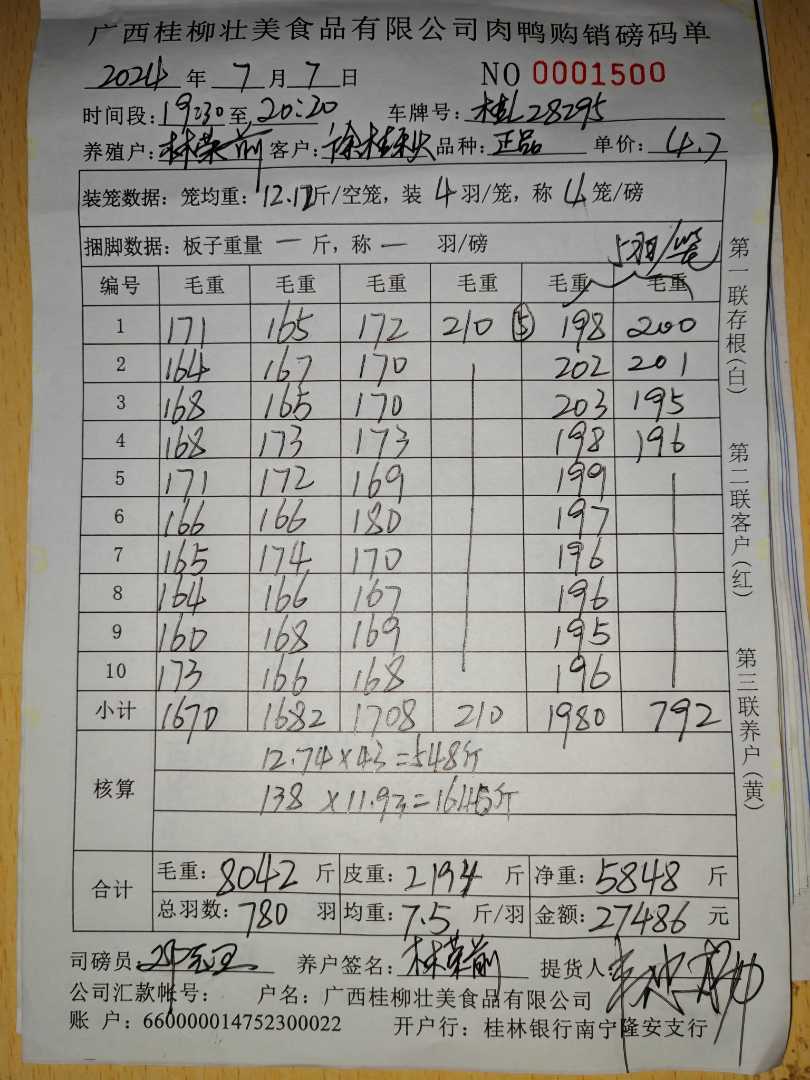 广西桂柳壮美食品有限公司肉鸭购销磅码单
2024 年 7 月 7 日 NO 0001500
时间段: 19:30 至 20:20 车牌号: 桂L28295
养殖户: 林荣前 客户: 徐桂秋 品种: 正品 单价: 4.7
装笼数据: 笼均重: 12.17斤/空笼, 装 4 羽/笼, 称 4 笼/磅
捆脚数据: 板子重量 一 斤, 称 一 羽/磅 5羽/笼
编号 毛重 毛重 毛重 毛重 毛重 毛重
1 171 165 172 210 ⑤ 198 200
2 164 167 170 202 201
3 168 165 170 203 195
4 168 173 173 198 196
5 171 172 169 199
6 166 166 180 197
7 165 174 170 196
8 164 166 167 196
9 160 168 169 195
10 173 166 168 196
小计 1670 1682 1708 210 1980 792
核算 12.74×43=548斤
138×11.93=1645斤
合计 毛重: 8042 斤 皮重: 2194 斤 净重: 5848 斤
总羽数: 780 羽 均重: 7.5 斤/羽 金额: 27486 元
司磅员: 养户签名: 林荣前 提货人:
公司汇款帐号: 户名: 广西桂柳壮美食品有限公司
账 户: 660000014752300022 开户行: 桂林银行南宁隆安支行
第一联存根(白)
第二联客户(红)
第三联养户(黄)